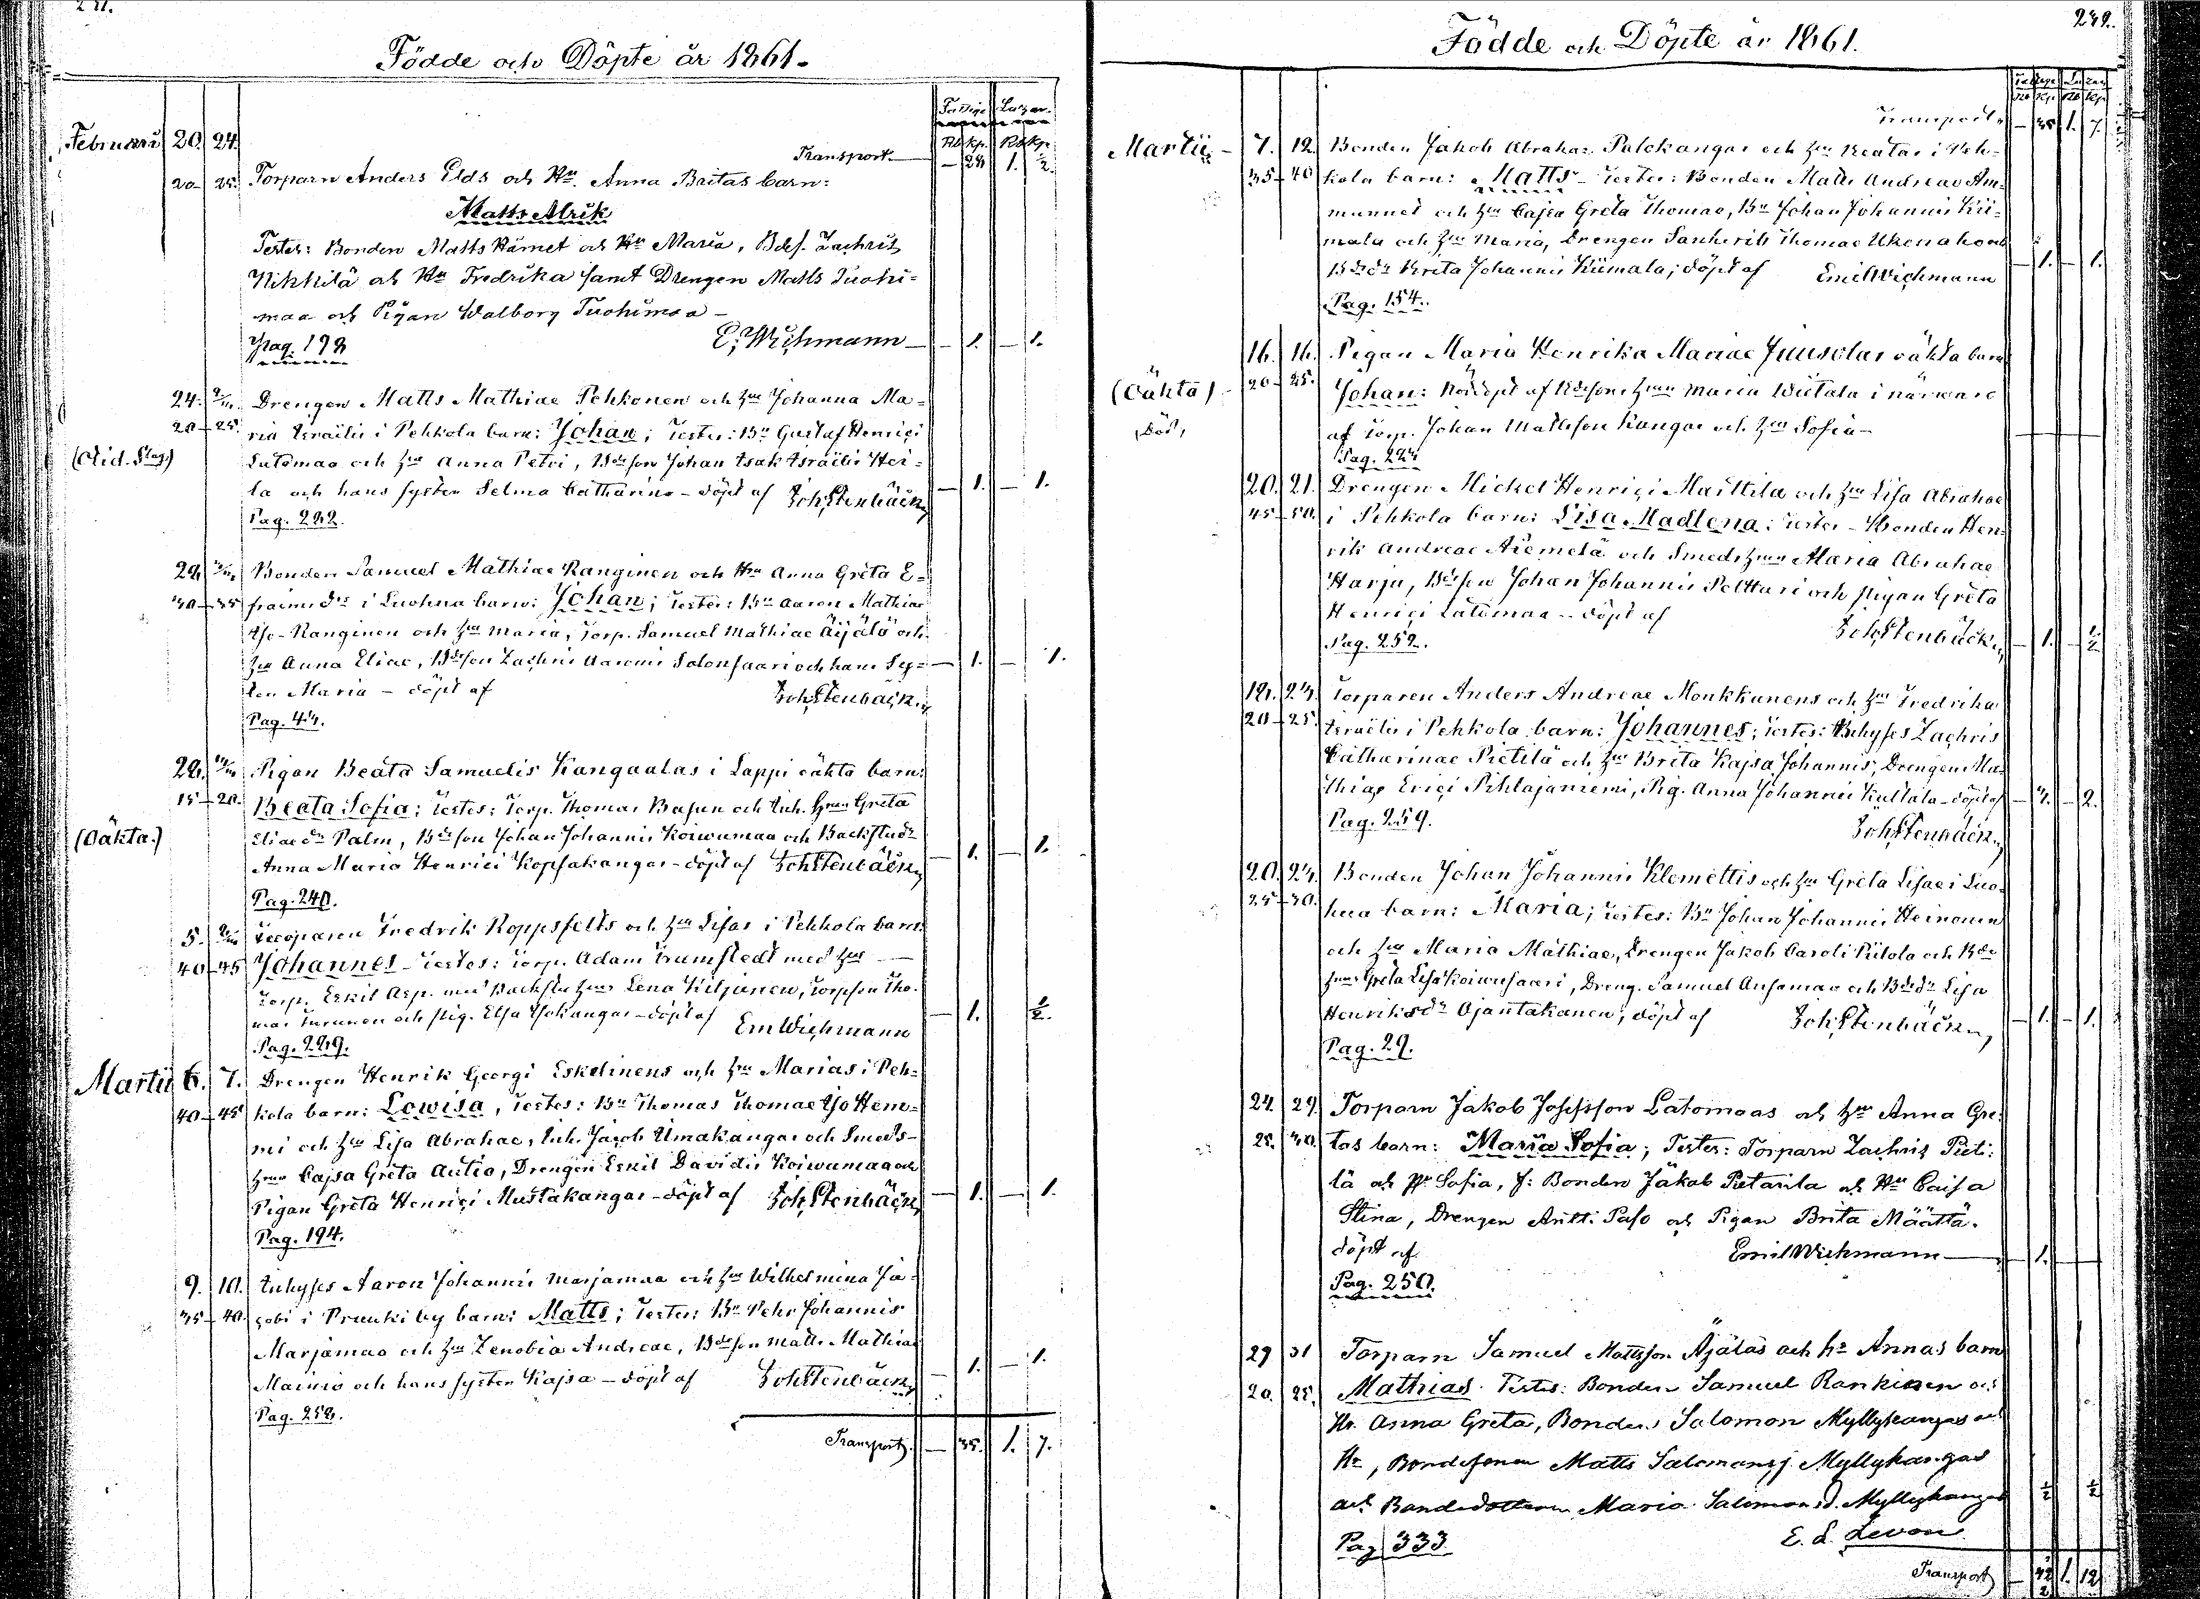 Födde och Döpte år 1861.
Fattige Lazar.
Rb kp. Rb kp.
Februarii 20. 24.
Transport — 28 1. ½.
20-25. Torparn Anders Elds och Hu. Anna Britas barn:
Matts Alrik
Testes: Bonden Matts Hämet och Hu Maria, Bdes. Zachris
Nikkilä och Hu Fredrika samt Drengen Matts Tuohi-
maa och Pigan Walborg Tuohimaa —
Pag. 198 E. Wichmann — 1. — 1.
24. Drengen Matts Mathiae Pehkonen och hu Johanna Ma-
20-25 ria Israelis i Pehkola barn: Johan; Testes: Bn Gustaf Henrici
Latomaa och hu Anna Petri, Bdeson Johan Isak Israelis Hei-
la och hans syster Selma Catharina - döpt af Joh. Stenbäck — 1. — 1.
Pag. 222.
28. Bonden Samuel Mathiae Ranginen och Hu Anna Greta E-
30-35 fraimsdr i Luohua barn: Johan; Testes: Bn Aaron Mathiae
Iso-Ranginen och hu Maria, Torp. Samuel Mathiae Äijälä och
hu Anna Eliae, Bdeson Zachris Aaroni Solonsaari och hans Sys- — 1. — 1.
ter Maria - döpt af Joh. Stenbäck
Pag. 44.
28. Pigan Beata Samuelis Kangaalas i Lappi oäkta barn:
15-20. Beata Sofia; Testes: Torp. Thomas Basun och Inh. hun Greta
(Oäkta.) Eliaedr Palm, Bdeson Johan Johannis Koiwumaa och Backstudr
Anna Maria Henrici Kopsakangas - döpt af Joh. Stenbäck — 1. 1.
Pag. 240.
5. Fredrik Roppsfelts och hu Lisas i Pehkola barn:
40-45 Johannes - Testes: Torp. Adam Trumstedt med hu
Torp. Eskil Asp. med Backstu hu Lena Kiljunen, Torpson Tho-
mas Turunen och pig. Elsa Isokangas - döpt af Em Wichmann — 1. ½.
Pag. 229.
Martii 6. 7. Drengen Henrik Georgi Eskelinens och hu Marias i Peh-
40-45 kola barn: Lowisa, Testes: Bn Thomas Thomae Iso Hem-
mi och hu Lisa Abrahae, Inh. Jacob Umakangas och Smeds-
hun Cajsa Greta Autio, Drengen Eskil Davidis Koiwumaa och
Pigan Greta Henrici Mustakangas - döpt af Joh. Stenbäck — 1. — 1.
Pag. 194.
9. 10. Inhyses Aaron Johannis Marjamaa och hu Wilhelmina Ja-
35-40. cobi i Pruuki by barn: Matts; Testes: Bn Pehr Johannis
Marjamaa och hu Zenobia Andreae, Bdeson Matts Mathiae
Mainio och hans syster Kajsa - döpt af Joh. Stenbäck — 1. — 1.
Pag. 258.
Transport. — 35. 1. 7.
Födde och Döpte år 1861.
Transport — 35 1. 7.
Martii 7. 12. Bonden Jakob Abrahae Palokangas och hu Beatas i Peh-
35-40 kola barn: Matts - Testes: Bonden Matts Andreae Am-
munnet och hu Cajsa Greta Thomae, Bn Johan Johannis Kii-
mala och hu Maria, Drengen Sanherib Thomae Ukonahoas
Bdedr Brita Johannis Kiimala; döpt af Emil Wichmann — 1. — 1.
Pag. 154.
16. 16. Pigan Maria Henrika Mariae Juusolas oäkta barn
(Oäkta) 20-25. Johan: Nöddöpt af hun Maria Wiitala i närwaro
Död, af Torp. Johan Mattsson Kangas och hu Sofia -
Pag. 224
20. 21. Drengen Mickel Henrici Maittila och hu Lisa Abrahae
45-50. i Pehkola barn: Lisa Madlena: Testes - Bonden Hen-
rik Andreae Niemelä och Smedshun Maria Abrahae
Harju, Bdeson Johan Johannis Pelttari och pigan Greta
Henrici Latomaa -- döpt af Joh. Stenbäck — 1. — ½
Pag. 252.
18. 24. Torparen Anders Andreae Monkkunens och hu Fredrika
20-25. Israelis i Pehkola barn: Johannes; Testes: Inhyses Zachris
Catharinae Pietilä och hu Brita Kajsa Johannis, Drengen Ma-
thias Erici Pihlajaniemi, Pig. Anna Johannis Kultala - döpt af — 2.
Pag. 259. Joh. Stenbäck
20. 24. Bonden Johan Johannis Klemettis och hu Greta Lisae i Luo-
25-30. hua barn: Maria; Testes: Bn Johan Johannis Heinonen
och hu Maria Mathiae, Drengen Jakob Caroli Piitola och Bde
hun Greta Lisa Koiwusaari, Dreng. Samuel Ansamaa och Bdedr Lisa
Henriksdr Ojantakanen, döpt af Joh. Stenbäck — 1. — 1.
Pag. 29.
24. 29. Torparn Jakob Josefsson Latomaas och hu Anna Gre-
25. 30. tas barn: Maria Sofia; Testes: Torparn Zachris Pieti-
lä och Hu Sofia, f. Bonden Jakob Pietarila och Hu Caisa
Stina, Drengen Antti Paso och Pigan Brita Määttä.
döpt af Emil Wichmann — 1. —
Pag. 250.
29 31 Torparn Samuel Mattsson Äjäläs och hu Annas barn
20. 25. Mathias. Testes: Bonden Samuel Rankinen och
Hu. Anna Greta, Bonden Salomon Myllykangas och
Hu, Bondesonen Matts Salomonss. Myllykangas
och Bondedottern Maria Salomonsd. Myllykangas ½ ½
Pag 333 E. L. Levon
Transport — 42 ½ 1. 12